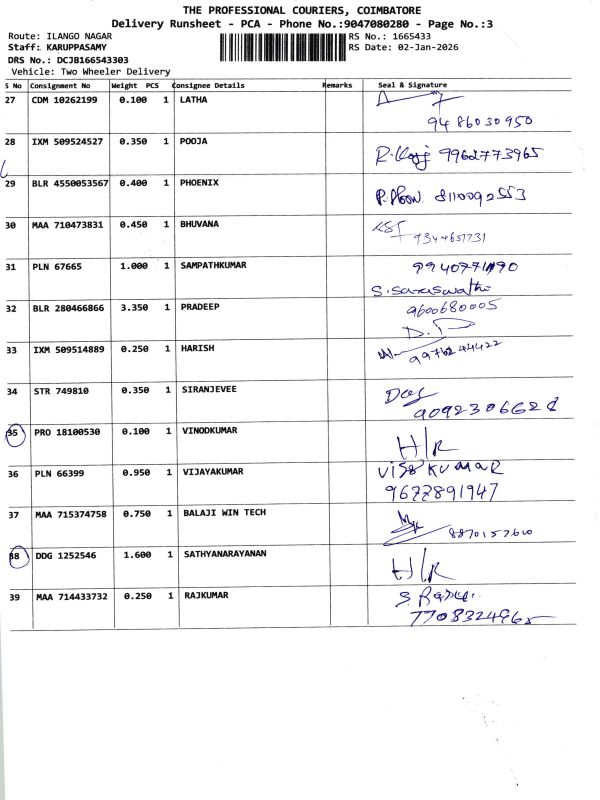 THE PROFESSIONAL COURIERS, COIMBATORE
Delivery Runsheet - PCA - Phone No.:9047080280 - Page No.:3
Route: ILANGO NAGAR RS No.: 1665433
Staff: KARUPPASAMY RS Date: 02-Jan-2026
DRS No.: DCJB166543303
Vehicle: Two Wheeler Delivery
S No Consignment No Weight PCS Consignee Details Remarks Seal & Signature
27 CDM 10262199 0.100 1 LATHA
9486030950
28 IXM 509524527 0.350 1 POOJA
9962773965
29 BLR 4550053567 0.400 1 PHOENIX
8110092553
30 MAA 710473831 0.450 1 BHUVANA
31 PLN 67665 1.000 1 SAMPATHKUMAR
S. Saraswathi
32 BLR 280466866 3.350 1 PRADEEP 9600680005
33 IXM 509514889 0.250 1 HARISH
34 STR 749810 0.350 1 SIRANJEVEE
35 PRO 18100530 0.100 1 VINODKUMAR
H/R
36 PLN 66399 0.950 1 VIJAYAKUMAR
9677891947
37 MAA 715374758 0.750 1 BALAJI WIN TECH
8870157600
38 DDG 1252546 1.600 1 SATHYANARAYANAN
H/R
39 MAA 714433732 0.250 1 RAJKUMAR
7708324965